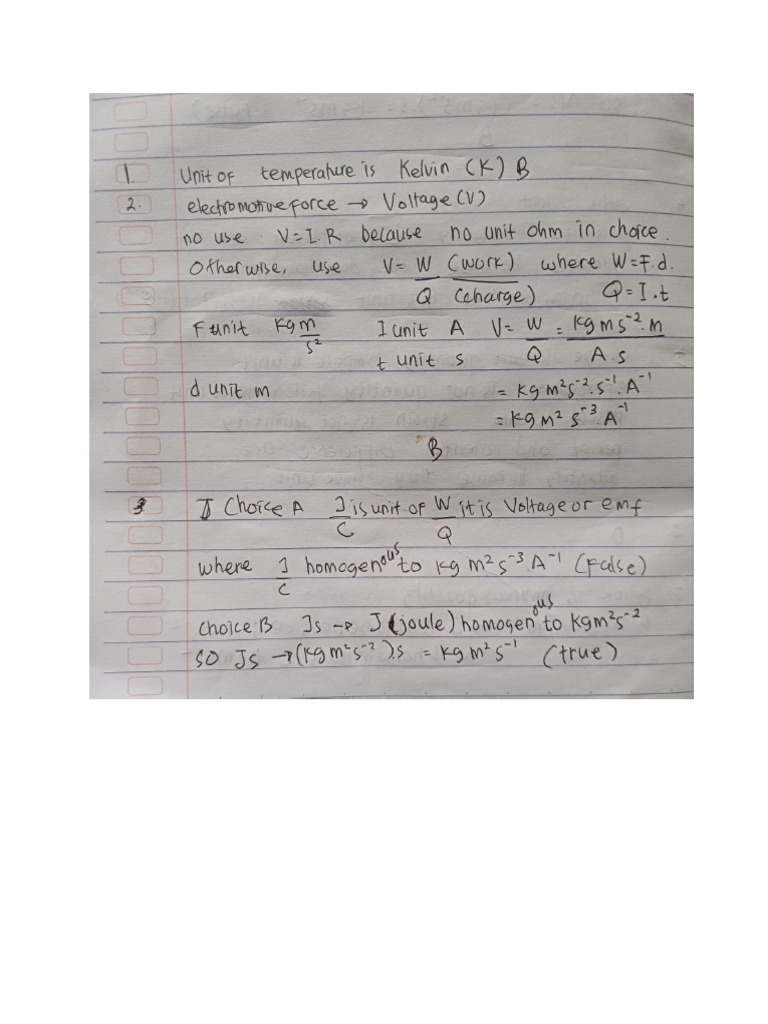 1. Unit of temperature is Kelvin (K) B
2. electromotive force → Voltage (V)
no use V=I.R because no unit ohm in choice.
Otherwise, use V= W (work) / Q (charge) where W=F.d. Q=I.t
F unit kg m/s² I unit A V= W/Q = kg m s⁻².m / A.s
t unit s
d unit m = kg m² s⁻².s⁻¹.A⁻¹
= kg m² s⁻³.A⁻¹
B
3 Choice A J/C is unit of W/Q it is Voltage or emf
where J/C homogenous to kg m² s⁻³.A⁻¹ (False)
choice B Js → J (joule) homogenous to kg m² s⁻²
so Js → (kg m² s⁻²).s = kg m² s⁻¹ (true)